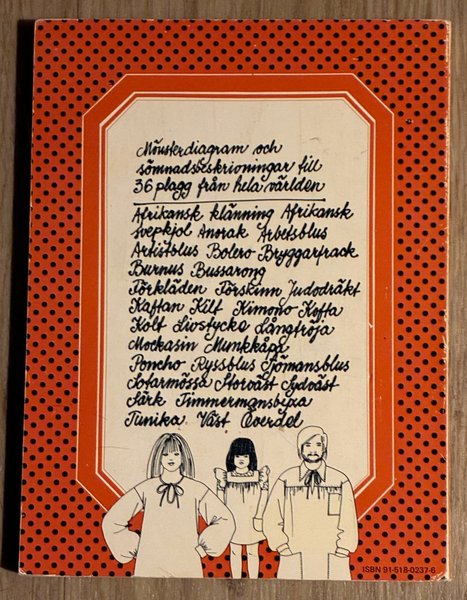 Mönsterdiagram och
sömnadsbeskrivningar till
36 plagg från hela världen
Afrikansk klänning Afrikansk
svepkjol Anorak Arbetsblus
Artistblus Bolero Bryggarfrack
Burnus Bussarong
Förkläden Förskinn Judodräkt
Kaftan Kilt Kimono Kofta
Kolt Livstycke Långtröja
Mockasin Munkkåpa
Poncho Ryssblus Sjömansblus
Sotarmössa Storväst Sydväst
Särk Timmermansbyxa
Tunika Väst Överdel
ISBN 91-518-0237-6